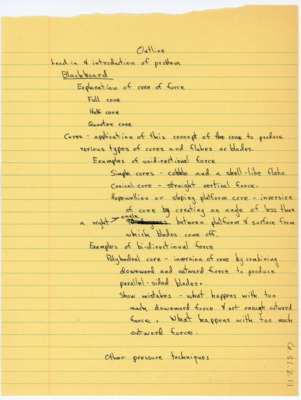 Outline
Lead in & introduction of problem
Blackboard
Explanation of cone of force
Full cone
Half cone
Quarter cone
Cores - application of this concept of the cone to produce
various types of cores and flakes or blades.
Examples of unidirectional force
Simple cores - cobble and a shell-like flake
Conical core - straight vertical force.
Hopewellian or sloping platform core - inversion
of cone by creating an angle of less than
a right angle between platform & surface from
which blades come off.
Examples of bi-directional force
Polyhedral core - inversion of cone by combining
downward and outward force to produce
parallel-sided blades.
Show mistakes - what happens with too
much downward force & not enough outward
force. What happens with too much
outward force.
Other pressure techniques